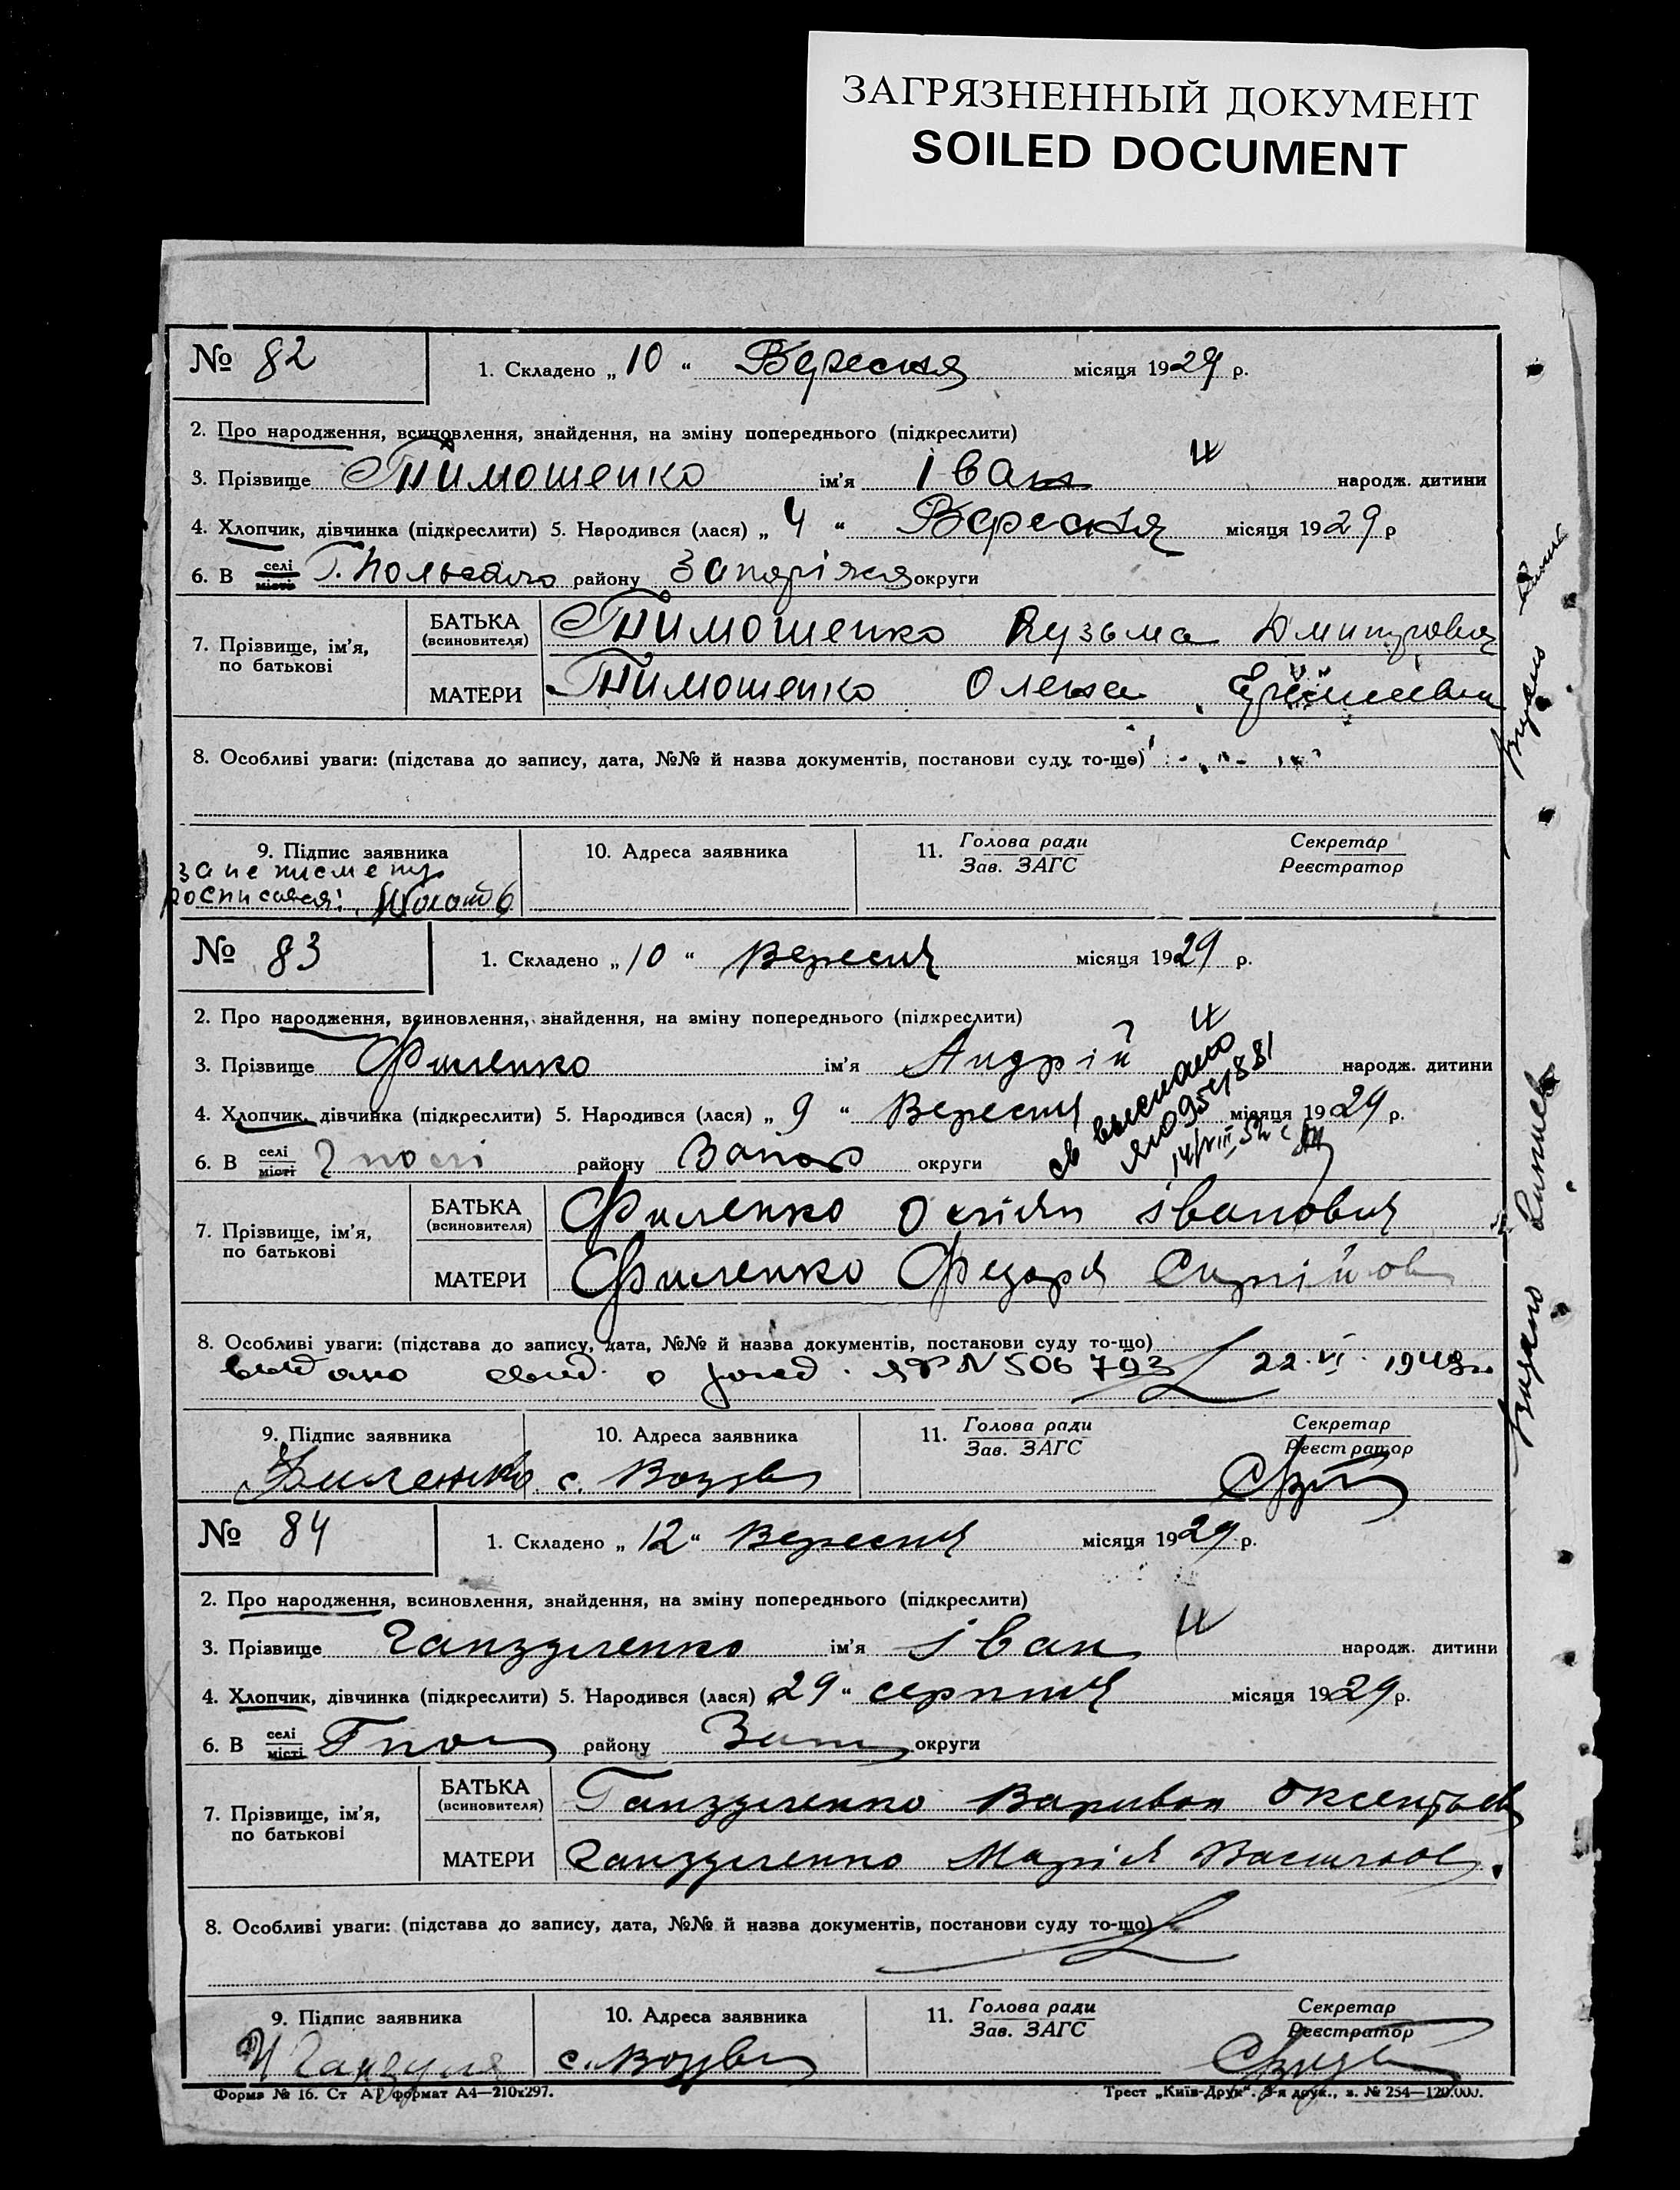 ЗАГРЯЗНЕННЫЙ ДОКУМЕНТ
SOILED DOCUMENT
№ 82
1. Складено „ 10 “ Вересня місяця 1929 р.
2. Про народження, всиновлення, знайдення, на зміну попереднього (підкреслити)
3. Прізвище Тимошенко ім'я Іван народж. дитини
4. Хлопчик, дівчинка (підкреслити) 5. Народився (лася) „ 4 “ Вересня місяця 1929 р
6. В селі місті району Запоріжя округи
7. Прізвище, ім'я, по батькові
БАТЬКА (всиновителя) Тимошенко Кузьма Дмитрович
МАТЕРИ Тимошенко Олена
8. Особливі уваги: (підстава до запису, дата, №№ й назва документів, постанови суду то-що)
9. Підпис заявника
10. Адреса заявника
11. Голова ради Зав. ЗАГС
Секретар Реєстратор
за неписмену
росписався:
№ 83
1. Складено „ 10 “ Вересня місяця 1929 р.
2. Про народження, всиновлення, знайдення, на зміну попереднього (підкреслити)
3. Прізвище Филенко ім'я Андрій народж. дитини
4. Хлопчик, дівчинка (підкреслити) 5. Народився (лася) „ 9 “ Вересня місяця 1929 р.
6. В селі місті району Запор округи
св выслано
ЯЮ 954881
14/VIII 52
7. Прізвище, ім'я, по батькові
БАТЬКА (всиновителя) Филенко Іванович
МАТЕРИ Филенко Федора Сергійов
8. Особливі уваги: (підстава до запису, дата, №№ й назва документів, постанови суду то-що)
выдано свид. о рожд. ЯР N 506793 22.VI.1948
9. Підпис заявника
10. Адреса заявника
11. Голова ради Зав. ЗАГС
Секретар Реєстратор
Филенко с.
№ 84
1. Складено „ 12 “ Вересня місяця 1929 р.
2. Про народження, всиновлення, знайдення, на зміну попереднього (підкреслити)
3. Прізвище Ганзуленко ім'я Іван народж. дитини
4. Хлопчик, дівчинка (підкреслити) 5. Народився (лася) „ 29 “ серпня місяця 1929 р.
6. В селі місті Гпол району Зап округи
7. Прізвище, ім'я, по батькові
БАТЬКА (всиновителя) Ганзуленко Вариван Оксентьев
МАТЕРИ Ганзуленко Марія Василов
8. Особливі уваги: (підстава до запису, дата, №№ й назва документів, постанови суду то-що)
9. Підпис заявника
10. Адреса заявника
11. Голова ради Зав. ЗАГС
Секретар Реєстратор
с.
Форма № 16. Ст АҐ формат А4—210x297.
Трест „Київ-Друк“. 3-я друк., з. № 254—120.000.